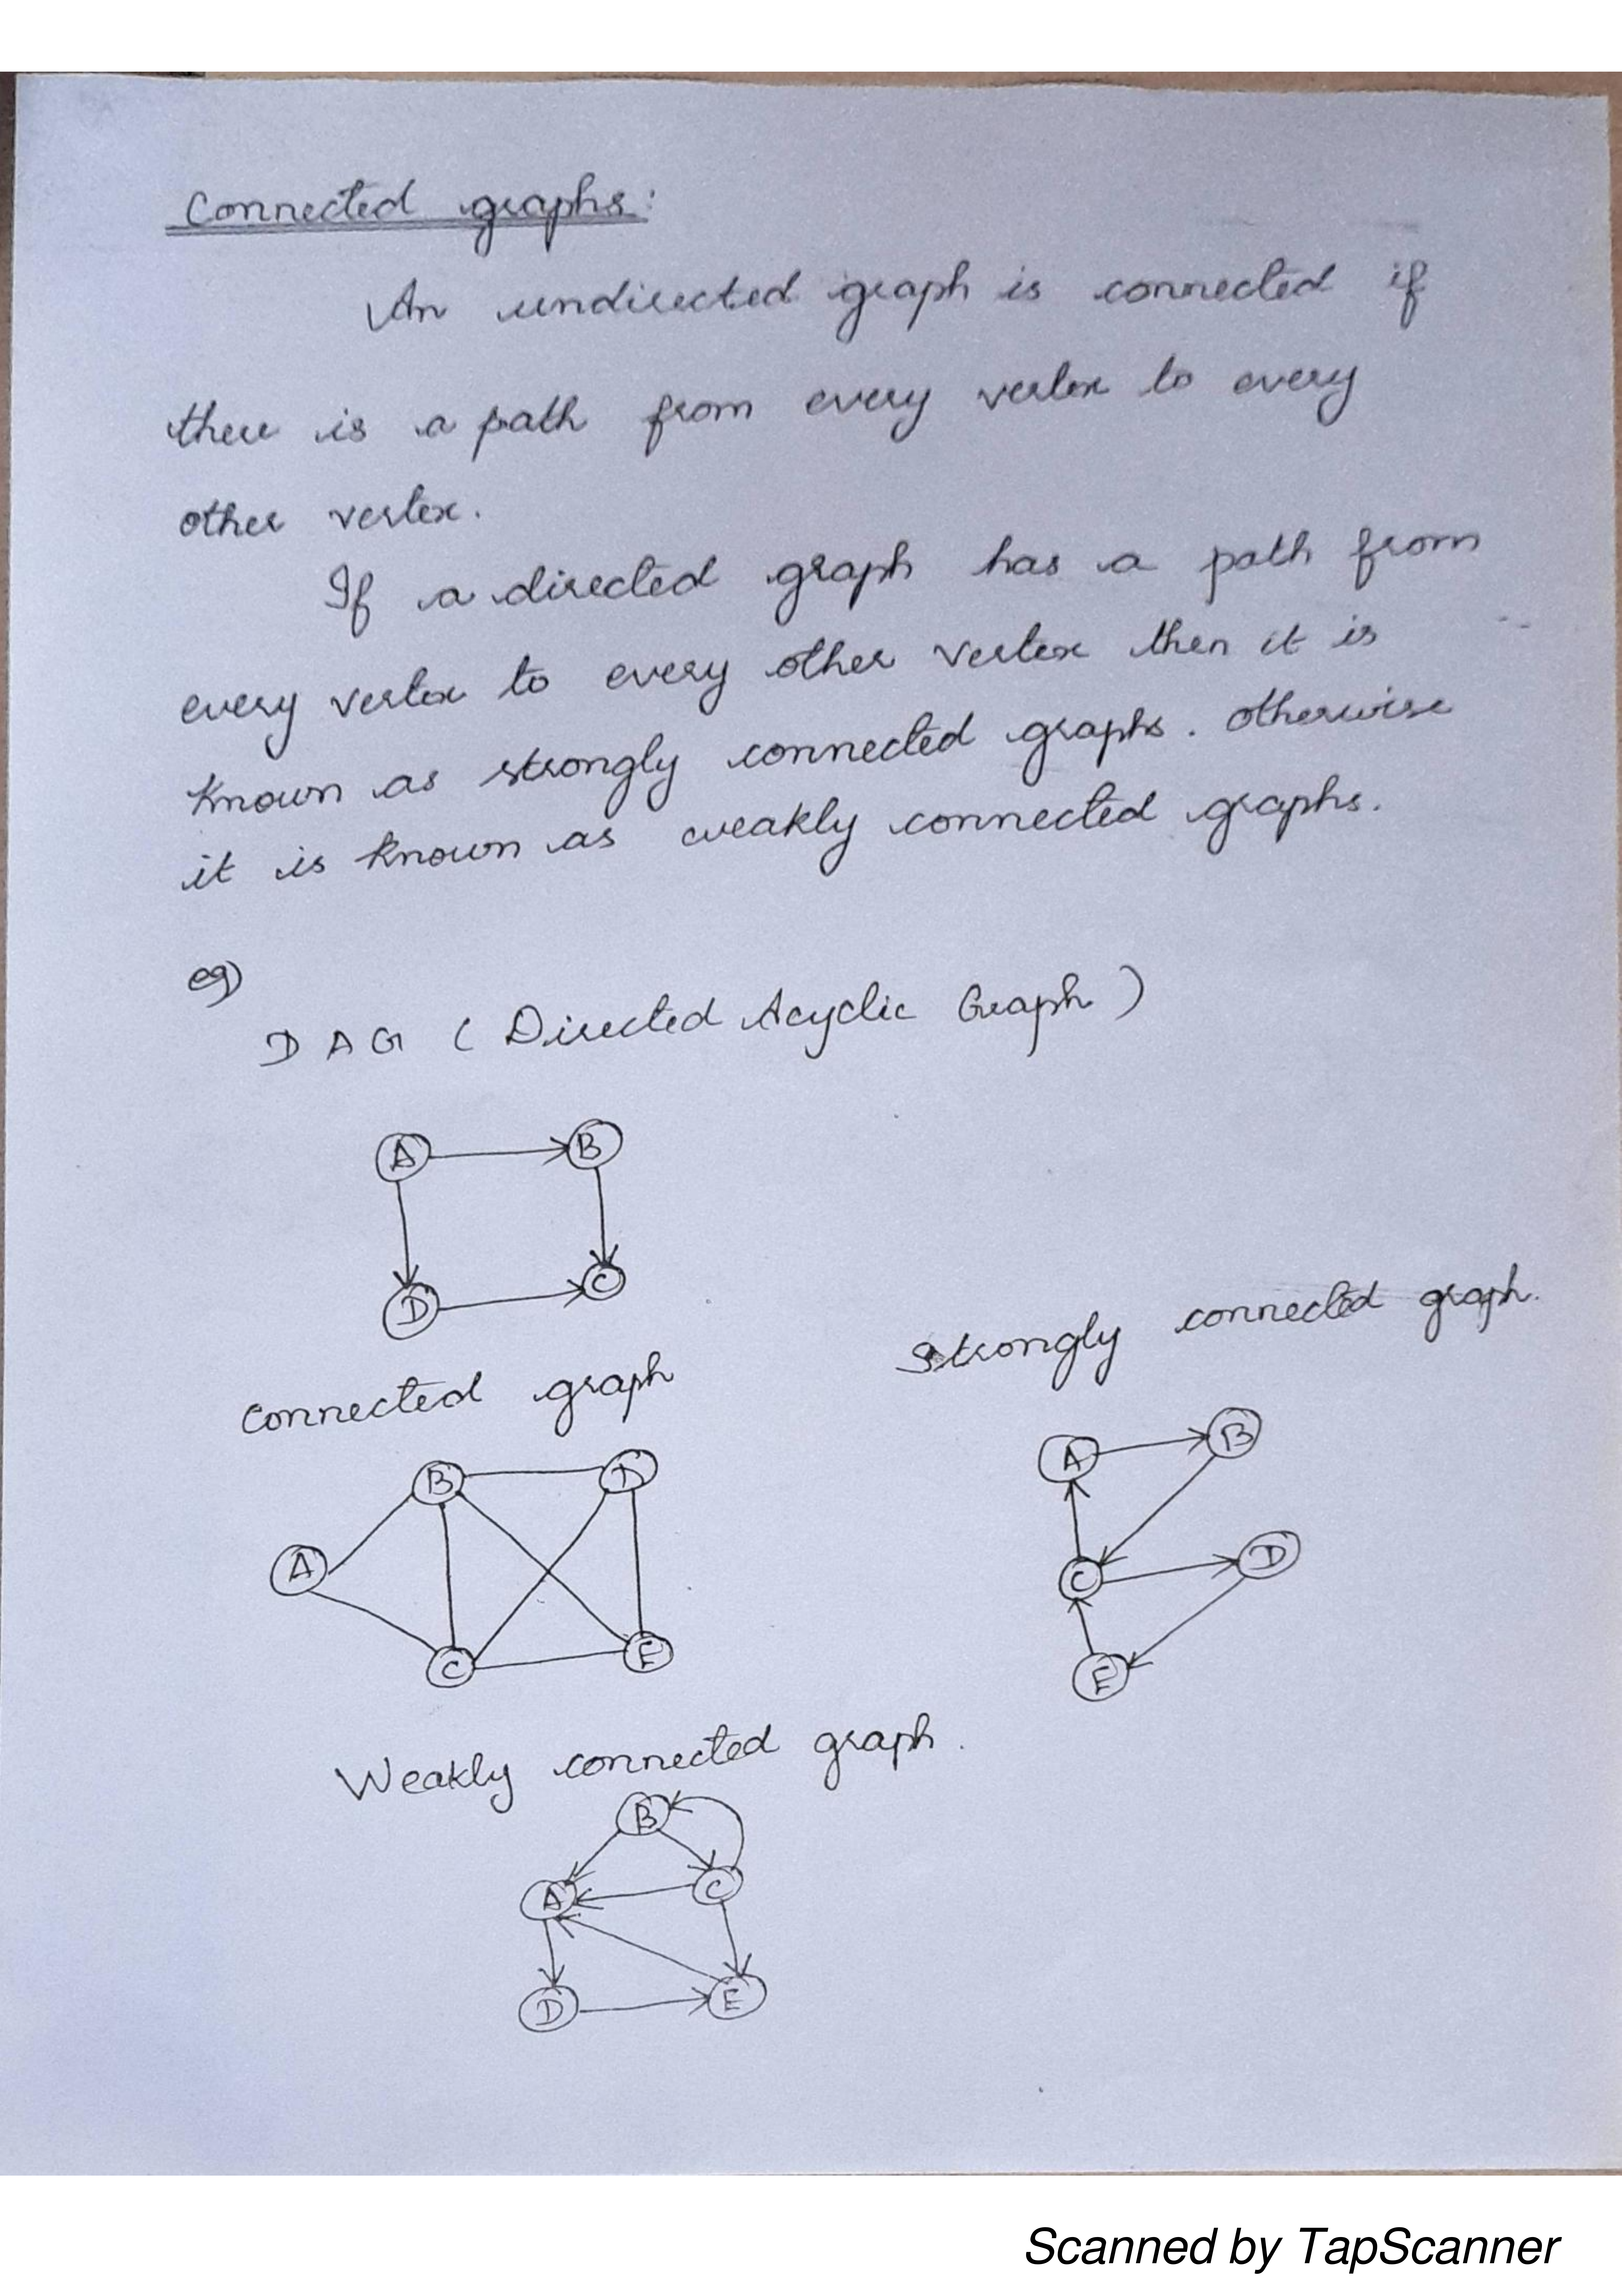 Connected graphs:
An undirected graph is connected if
there is a path from every vertex to every
other vertex.
If a directed graph has a path from
every vertex to every other vertex then it is
known as strongly connected graphs. otherwise
it is known as weakly connected graphs.
eg)
DAG (Directed Acyclic Graph)
A B
D C
Strongly connected graph.
A B
C D
E
connected graph
B D
A
C E
Weakly connected graph.
B
A C
D E
Scanned by TapScanner